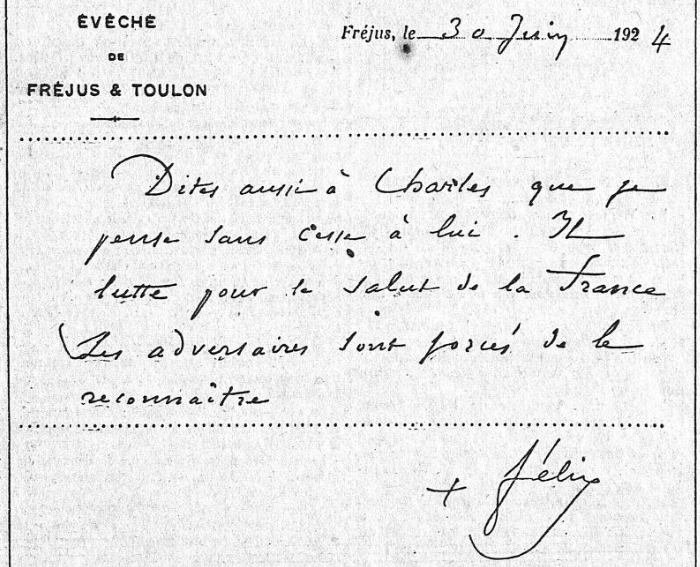 ÉVÊCHÉ
DE
FRÉJUS & TOULON
Fréjus, le 30 Juin 1924
Dites aussi à Charles que je
pense sans cesse à lui. Il
lutte pour le salut de la France
Ses adversaires sont forcés de le
reconnaître
+ félix